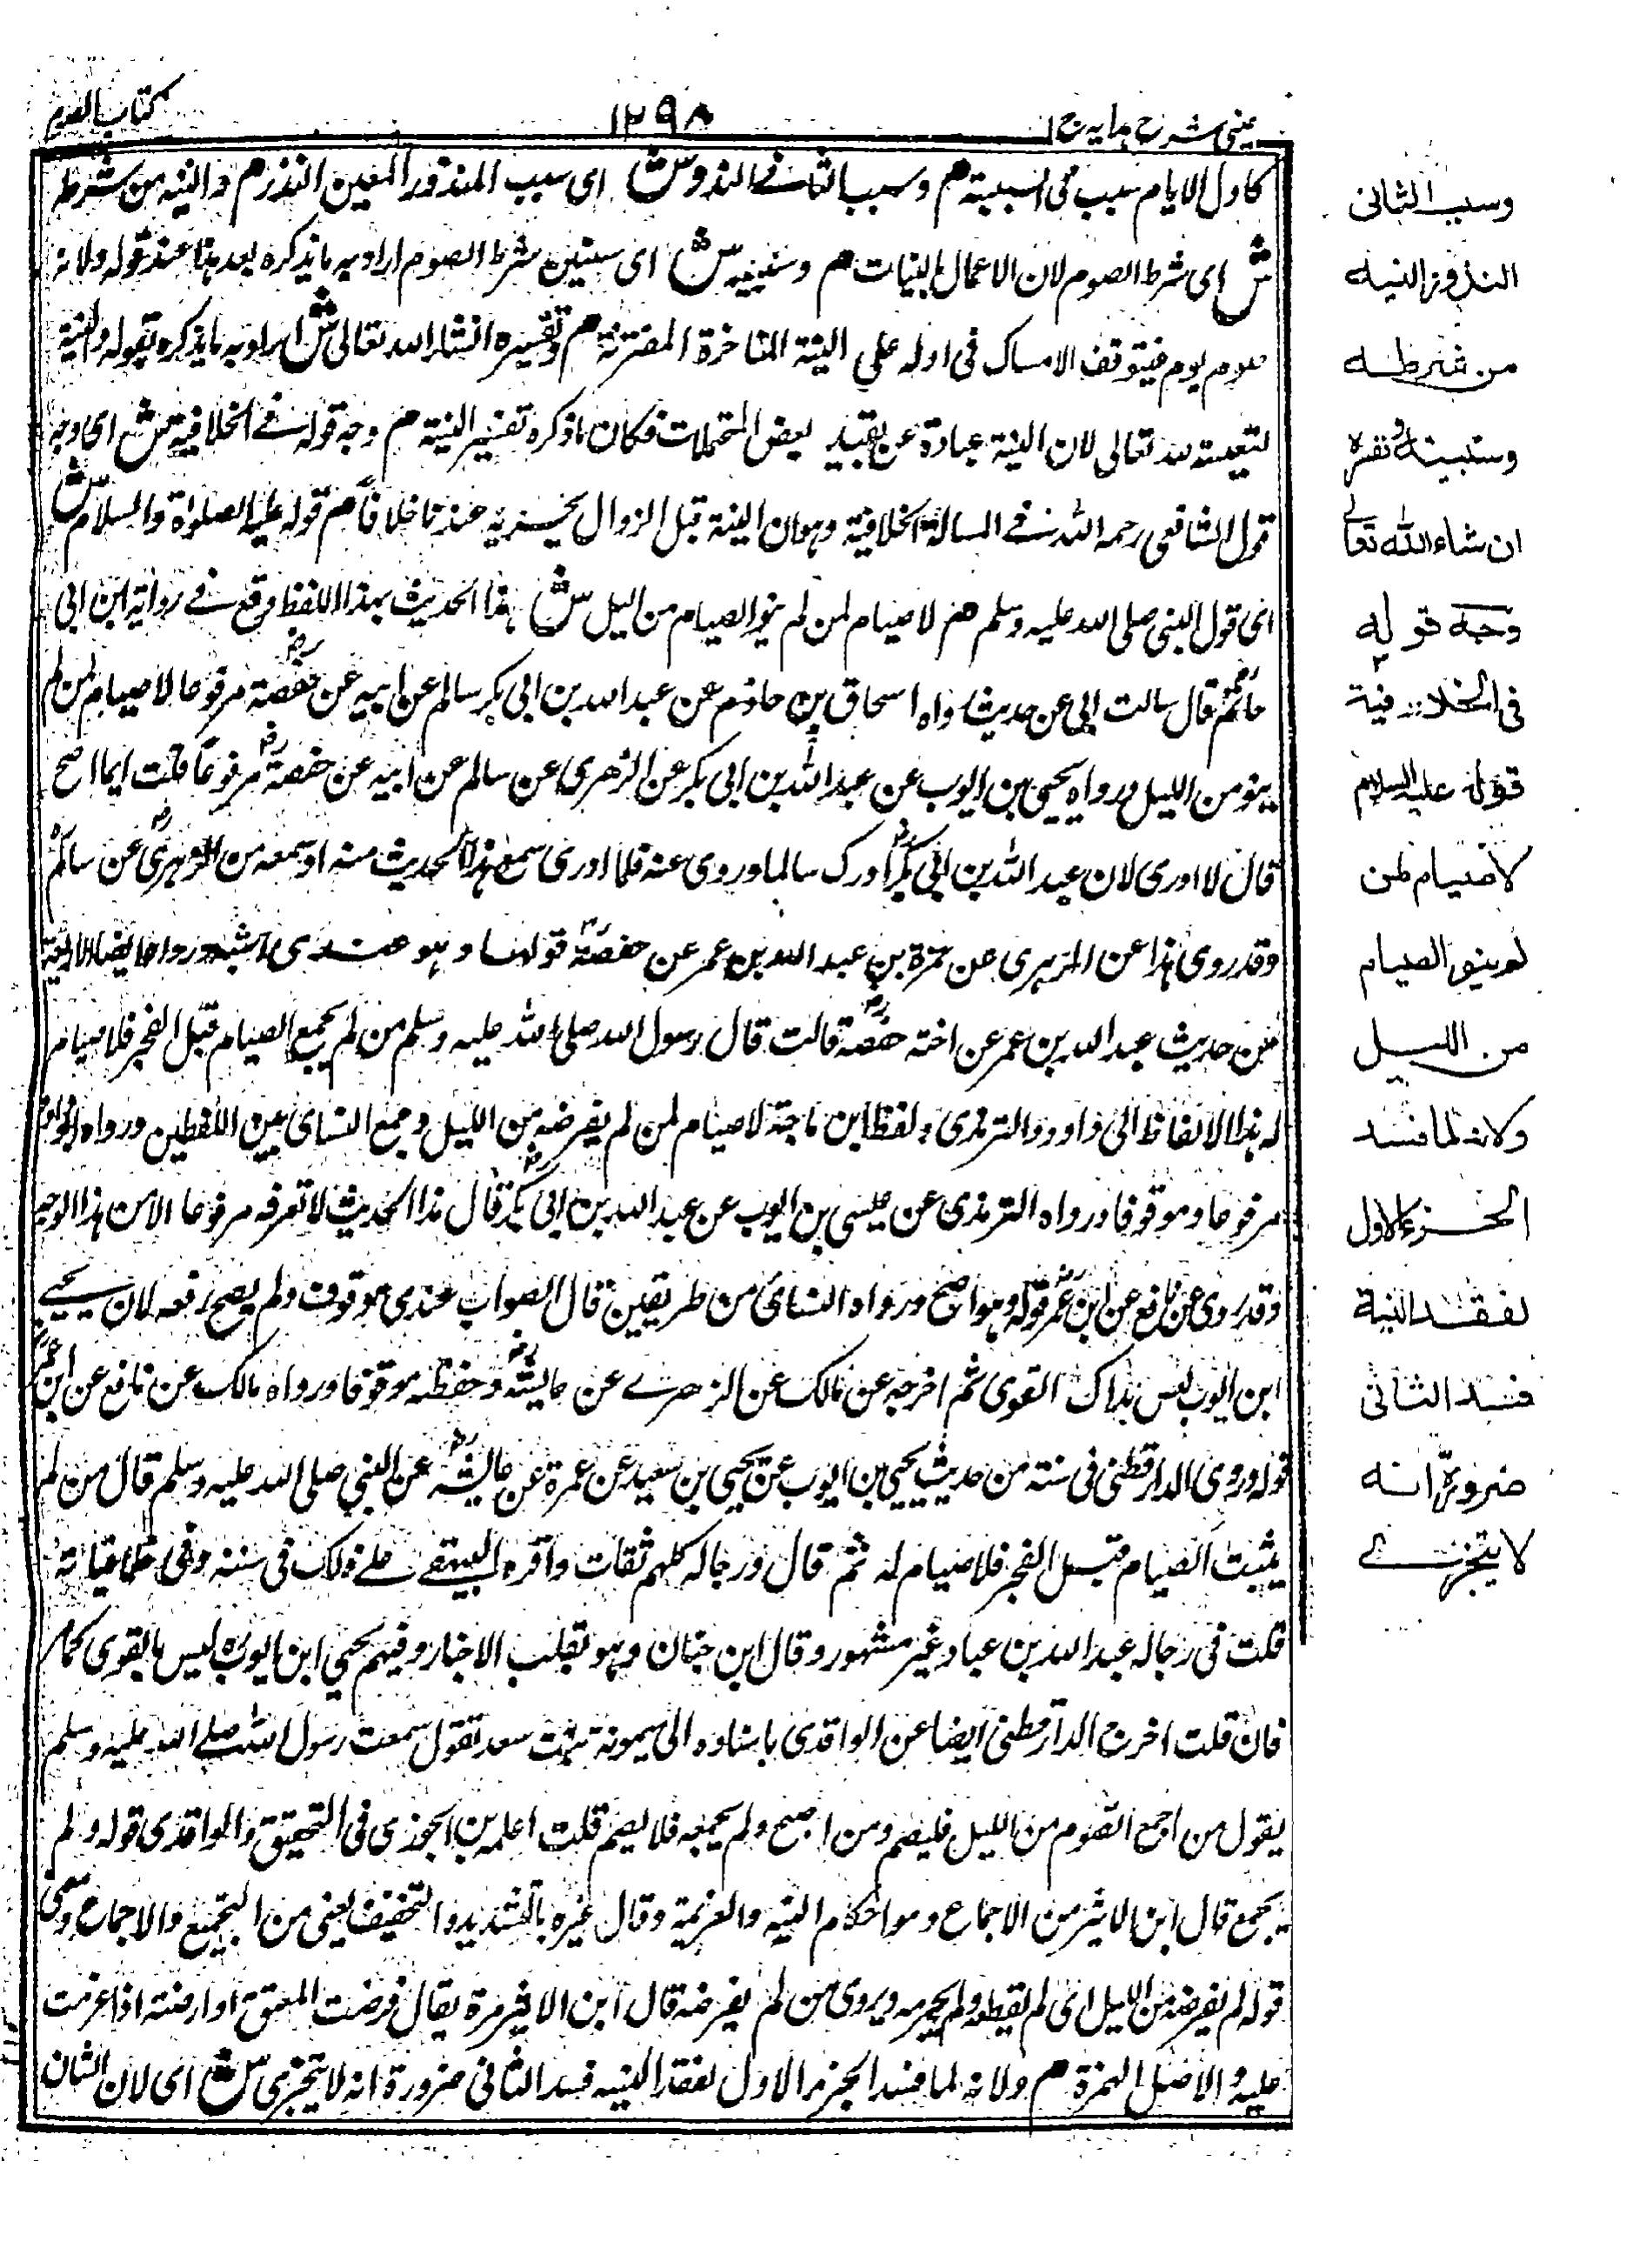 عینی شرح ہدایہ ج ا
١٢٩٨
کتاب الصوم
کاول الایام سبب فی السببیۃ م وسبب الثانے النذر وش ای سبب المنذور المعین النذر م والنیۃ من شرطہ
ش ای شرط الصوم لان الاعمال بالنیات م وسنبینہ ش ای سنبین شرط الصوم ارادبہ ما یذکرہ بعد ہذا عند قولہ ولانہ
صوم یوم فیتوقف الامساک فی اولہ علی النیۃ المتاخرۃ المقترنۃ م وتفسیرہ انشاء اللہ تعالی ش ارادبہ ما یذکرہ بقولہ والنیۃ
لتعیینہ للہ تعالی لان النیۃ عبارۃ عن تقیید بعض المحتملات فکان ما ذکرہ تفسیر النیۃ م وجہ قولہ فے الخلافیۃ ش ای وجہ
قول الشافعی رحمہ اللہ فے المسالۃ الخلافیۃ وہوان النیۃ قبل الزوال یجزیہ عندنا خلافاً م قولہ علیہ الصلواۃ والسلام ش
ای قول النبی صلی اللہ علیہ وسلم م لا صیام لمن لم ینو الصیام من اللیل ش ہذا الحدیث بہذا اللفظ وقع فے روایۃ ابن ابی
حاتم قال سالت ابی عن حدیث رواہ اسحاق بن حازم عن عبد اللہ بن ابی بکر سالم عن ابیہ عن حفصۃ مرفوعا لا صیام لمن لم
ینو من اللیل ورواہ یحیی بن ایوب عن عبد اللہ بن ابی بکر عن الزھری عن سالم عن ابیہ عن حفصۃ مرفوعاً قلت ایما اصح
قال لا ادری لان عبد اللہ بن ابی بکر ادرک سالما وروی عنہ فلا ادری سمع ہذا الحدیث منہ او سمعہ من الزہری عن سالم
وقد روی ہذا عن الزہری عن حمزۃ بن عبد اللہ بن عمر عن حفصۃ قولہا وہو عندی اشبہ ورواہ ایضا الاربعۃ
من حدیث عبد اللہ بن عمر عن اختہ حفصۃ قالت قال رسول اللہ صلی اللہ علیہ وسلم من لم یجمع الصیام قبل الفجر فلا صیام
لہ ہذا الالفاظ ابی داود والترمذی ولفظ ابن ماجۃ لا صیام لمن لم یفرضہ من اللیل وجمع النسای بین اللفظین ورواہ ابو داود
مرفوعا وموقوفا ورواہ الترمذی عن یحیی بن ایوب عن عبد اللہ بن ابی بکر قال ہذا الحدیث لا نعرفہ مرفوعا الا من ہذا الوجہ
وقد روی عن نافع عن ابن عمر قولہ وہو اصح ورواہ النسائی من طریقین قال الصواب عندی موقوف ولم یصح رفعہ لان یحیی
ابن ایوب لیس بذاک القوی ثم اخرجہ عن مالک عن الزھرے عن عایشۃ وحفظہ موقوفا ورواہ مالک عن نافع عن ابن عمر
قولہ وروی الدارقطنی فی سنتہ من حدیث یحیی بن ایوب عن یحیی بن سعید عن عمرۃ عن عایشۃ عن النبی صلی اللہ علیہ وسلم قال من لم
یثبت الصیام قبل الفجر فلا صیام لہ ثم قال ورجالہ کلہم ثقات واقرہ البیہقے علے ذلک فی سننہ وفی خلافیاتہ
قلت فی رجالہ عبد اللہ بن عباد غیر مشہور وقال ابن حبان وہو یقلب الاخبار وفیہم یحیی ابن ایوب لیس بالقوی کما مر
فان قلت اخرج الدارقطنی ایضا عن الواقدی باسنادہ الی میمونۃ بنت سعد تقول سمعت رسول اللہ صلے اللہ علیہ وسلم
یقول من اجمع الصوم من اللیل فلیصم ومن اصبح ولم یجمعہ فلا یصم قلت اعلہ بن الجوزی فی التحقیق والواقدی قولہ ولم
یجمع قال ابن الاثیر من الاجماع وہو احکام النیۃ والعزیمۃ وقال غیرہ بالتشدید والتخفیف یعنی من التجمیع والاجماع ومعنی
قولہ لم یفرضہ من اللیل ای لم یقطہ ولم یجرمہ ویروی من لم یفرضہ قال ابن الاثیر مرۃ یقال فرضت المعتق او ارضتہ اذا عزمت
علیہ والاصل الہمزۃ م ولانہ لما فسد الجزء الاول لفقد النیۃ فسد الثانی ضرورۃ انہ لا یتجزی ش ای لان الشان
وسبب الثانی
النذر والنیۃ
من شرطہ
وسنبینہ وتفسرہ
ان شاء اللہ تعالی
وجہ قولہ
فی الخلافیۃ
قولہ علیہ السلام
لا صیام لمن
لم ینو الصیام
من اللیل
ولانہ لما فسد
الجزء الاول
لفقد النیۃ
فسد الثانی
ضرورۃ انہ
لا یتجزے